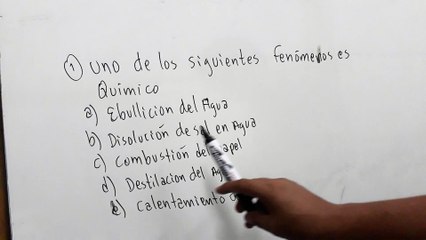 ① Uno de los siguientes fenómenos es
Químico
a) Ebullición del Agua
b) Disolución de sal en Agua
c) Combustión del Papel
d) Destilación del
e) Calentamiento